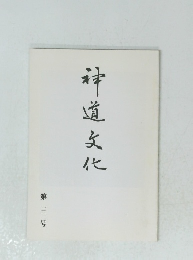 神道文化
第 号